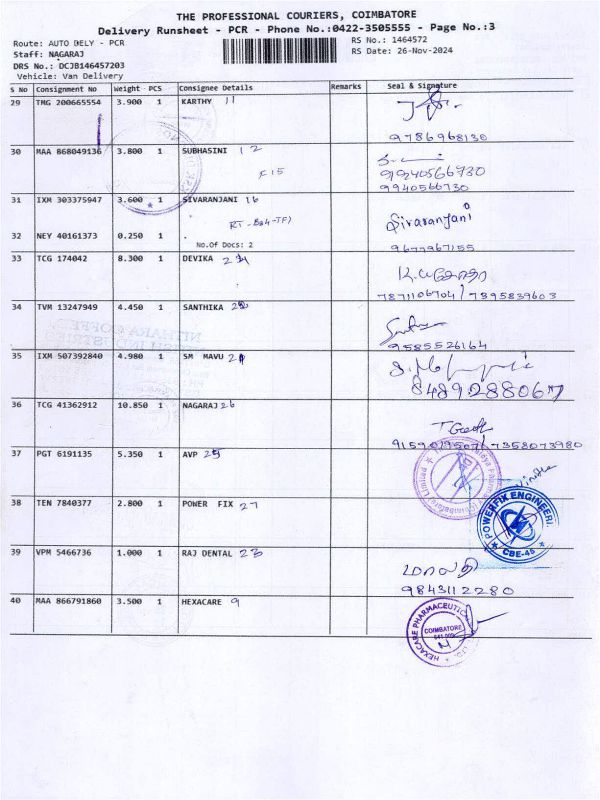 THE PROFESSIONAL COURIERS, COIMBATORE
Delivery Runsheet - PCR - Phone No.:0422-3505555 - Page No.:3
Route: AUTO DELY - PCR
RS No.: 1464572
Staff: NAGARAJ
RS Date: 26-Nov-2024
DRS No.: DCJB146457203
Vehicle: Van Delivery
S No Consignment No Weight PCS Consignee Details Remarks Seal & Signature
29 TMG 200665554 3.900 1 KARTHY 11
9786968138
30 MAA 868049136 3.800 1 SUBHASINI 12
F15
9940566730
9940566730
31 IXM 303375947 3.600 1 SIVARANJANI 16
Sivaranjani
32 NEY 40161373 0.250 1 No.Of Docs: 2
9677967155
33 TCG 174042 8.300 1 DEVIKA
7871106704 / 7395839603
34 TVM 13247949 4.450 1 SANTHIKA
9585526164
35 IXM 507392840 4.980 1 SM MAVU
36 TCG 41362912 10.850 1 NAGARAJ 26
9159079507 / 7358073980
37 PGT 6191135 5.350 1 AVP
38 TEN 7840377 2.800 1 POWER FIX 27
POWERFIX ENGINEERI
CBE-45
39 VPM 5466736 1.000 1 RAJ DENTAL 23
மாலதி
9843112280
40 MAA 866791860 3.500 1 HEXACARE 9
HEXACARE PHARMACEUTIC
COIMBATORE